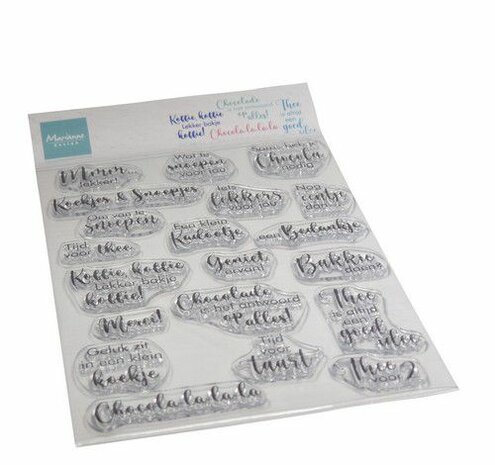 Marianne
design
Koffie koffie
Lekker bakje
koffie!
Chocolade
is het antwoord
op alles!
Chocola la la la
Thee
is altijd
een
goed
idee
Mmm...
lekker!
Wat te
snoepen
voor jou
Chocola
Koekjes & Snoepjes
Iets
lekkers
voor jou
Nog
eentje
dan
Om van te
Snoepen
Een klein
Kadootje
een
Bedankje
Tijd
voor thee
Koffie koffie
Lekker bakje
koffie!
Geniet
ervan!
Bakkie
doen?
Chocolade
is het antwoord
op alles!
Thee
is altijd
een
goed
idee
Mmm!
Geluk zit
in een klein
koekje
Tijd
voor
taart
Thee
voor 2
Chocola la la la